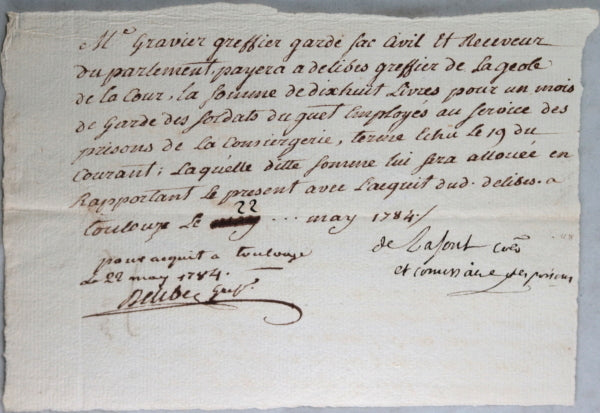 Mr Gravier greffier garde sac Civil Et Receveur
du parlement, payera a delibes greffier de La geole
de la Cour, la somme de dixhuit Livres pour un mois
de Garde des soldats du guet Employés au service des
prisons de La Consiergerie, terme Echu Le 19 du
Courant; Laquelle ditte somme lui sera allouée en
Rapportant Le present avec L'acquit dud. delibes. a
toulouze Le 22 ... may 1784./
pour acquit a toulouze
Le 22 may 1784.
Delibes Greff.
de Lafont
et comissaire des prisons